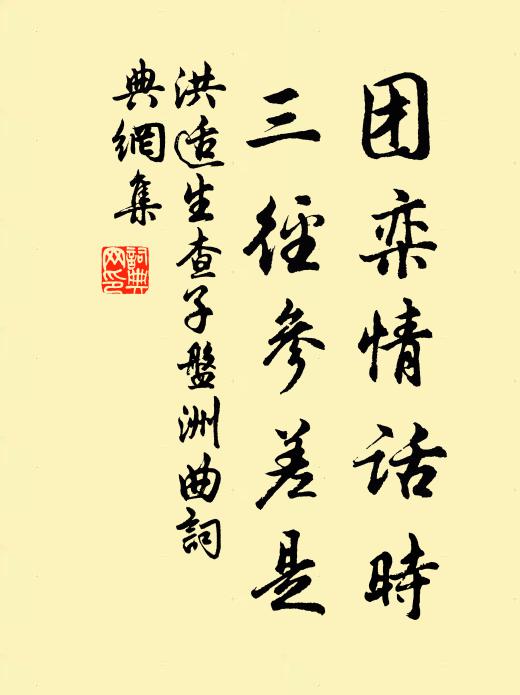 团栾情话时
三径参差是
洪适生查子盤洲曲詞
典網集
詞典
网印